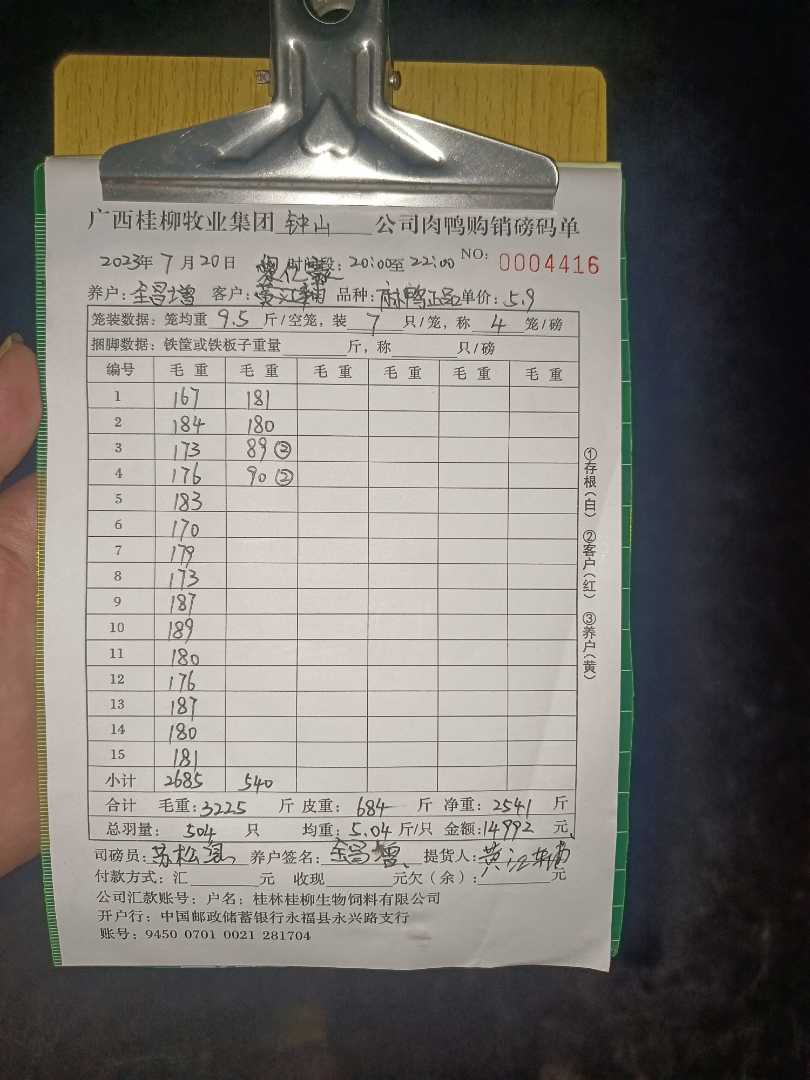 广西桂柳牧业集团 钟山 公司肉鸭购销磅码单
2023年 7月20日 时间段：20:00至22:00 NO: 0004416
养户： 客户：黄江辅 品种：麻鸭正品 单价：5.9
笼装数据：笼均重 9.5 斤/空笼，装 7 只/笼，称 4 笼/磅
捆脚数据：铁筐或铁板子重量 斤，称 只/磅
编号 毛重 毛重 毛重 毛重 毛重 毛重
1 167 181
2 184 180
3 173 89②
4 176 90②
5 183
6 170
7 179
8 173
9 187
10 189
11 180
12 176
13 187
14 180
15 181
小计 2685 540
合计 毛重：3225 斤 皮重：684 斤 净重：2541 斤
总羽量：504 只 均重：5.04 斤/只 金额：14992 元
司磅员：苏松 养户签名： 提货人：黄江辅
付款方式：汇 元 收现 元欠（余）： 元
公司汇款账号：户名：桂林桂柳生物饲料有限公司
开户行：中国邮政储蓄银行永福县永兴路支行
账号：9450 0701 0021 281704
①存根（白） ②客户（红） ③养户（黄）